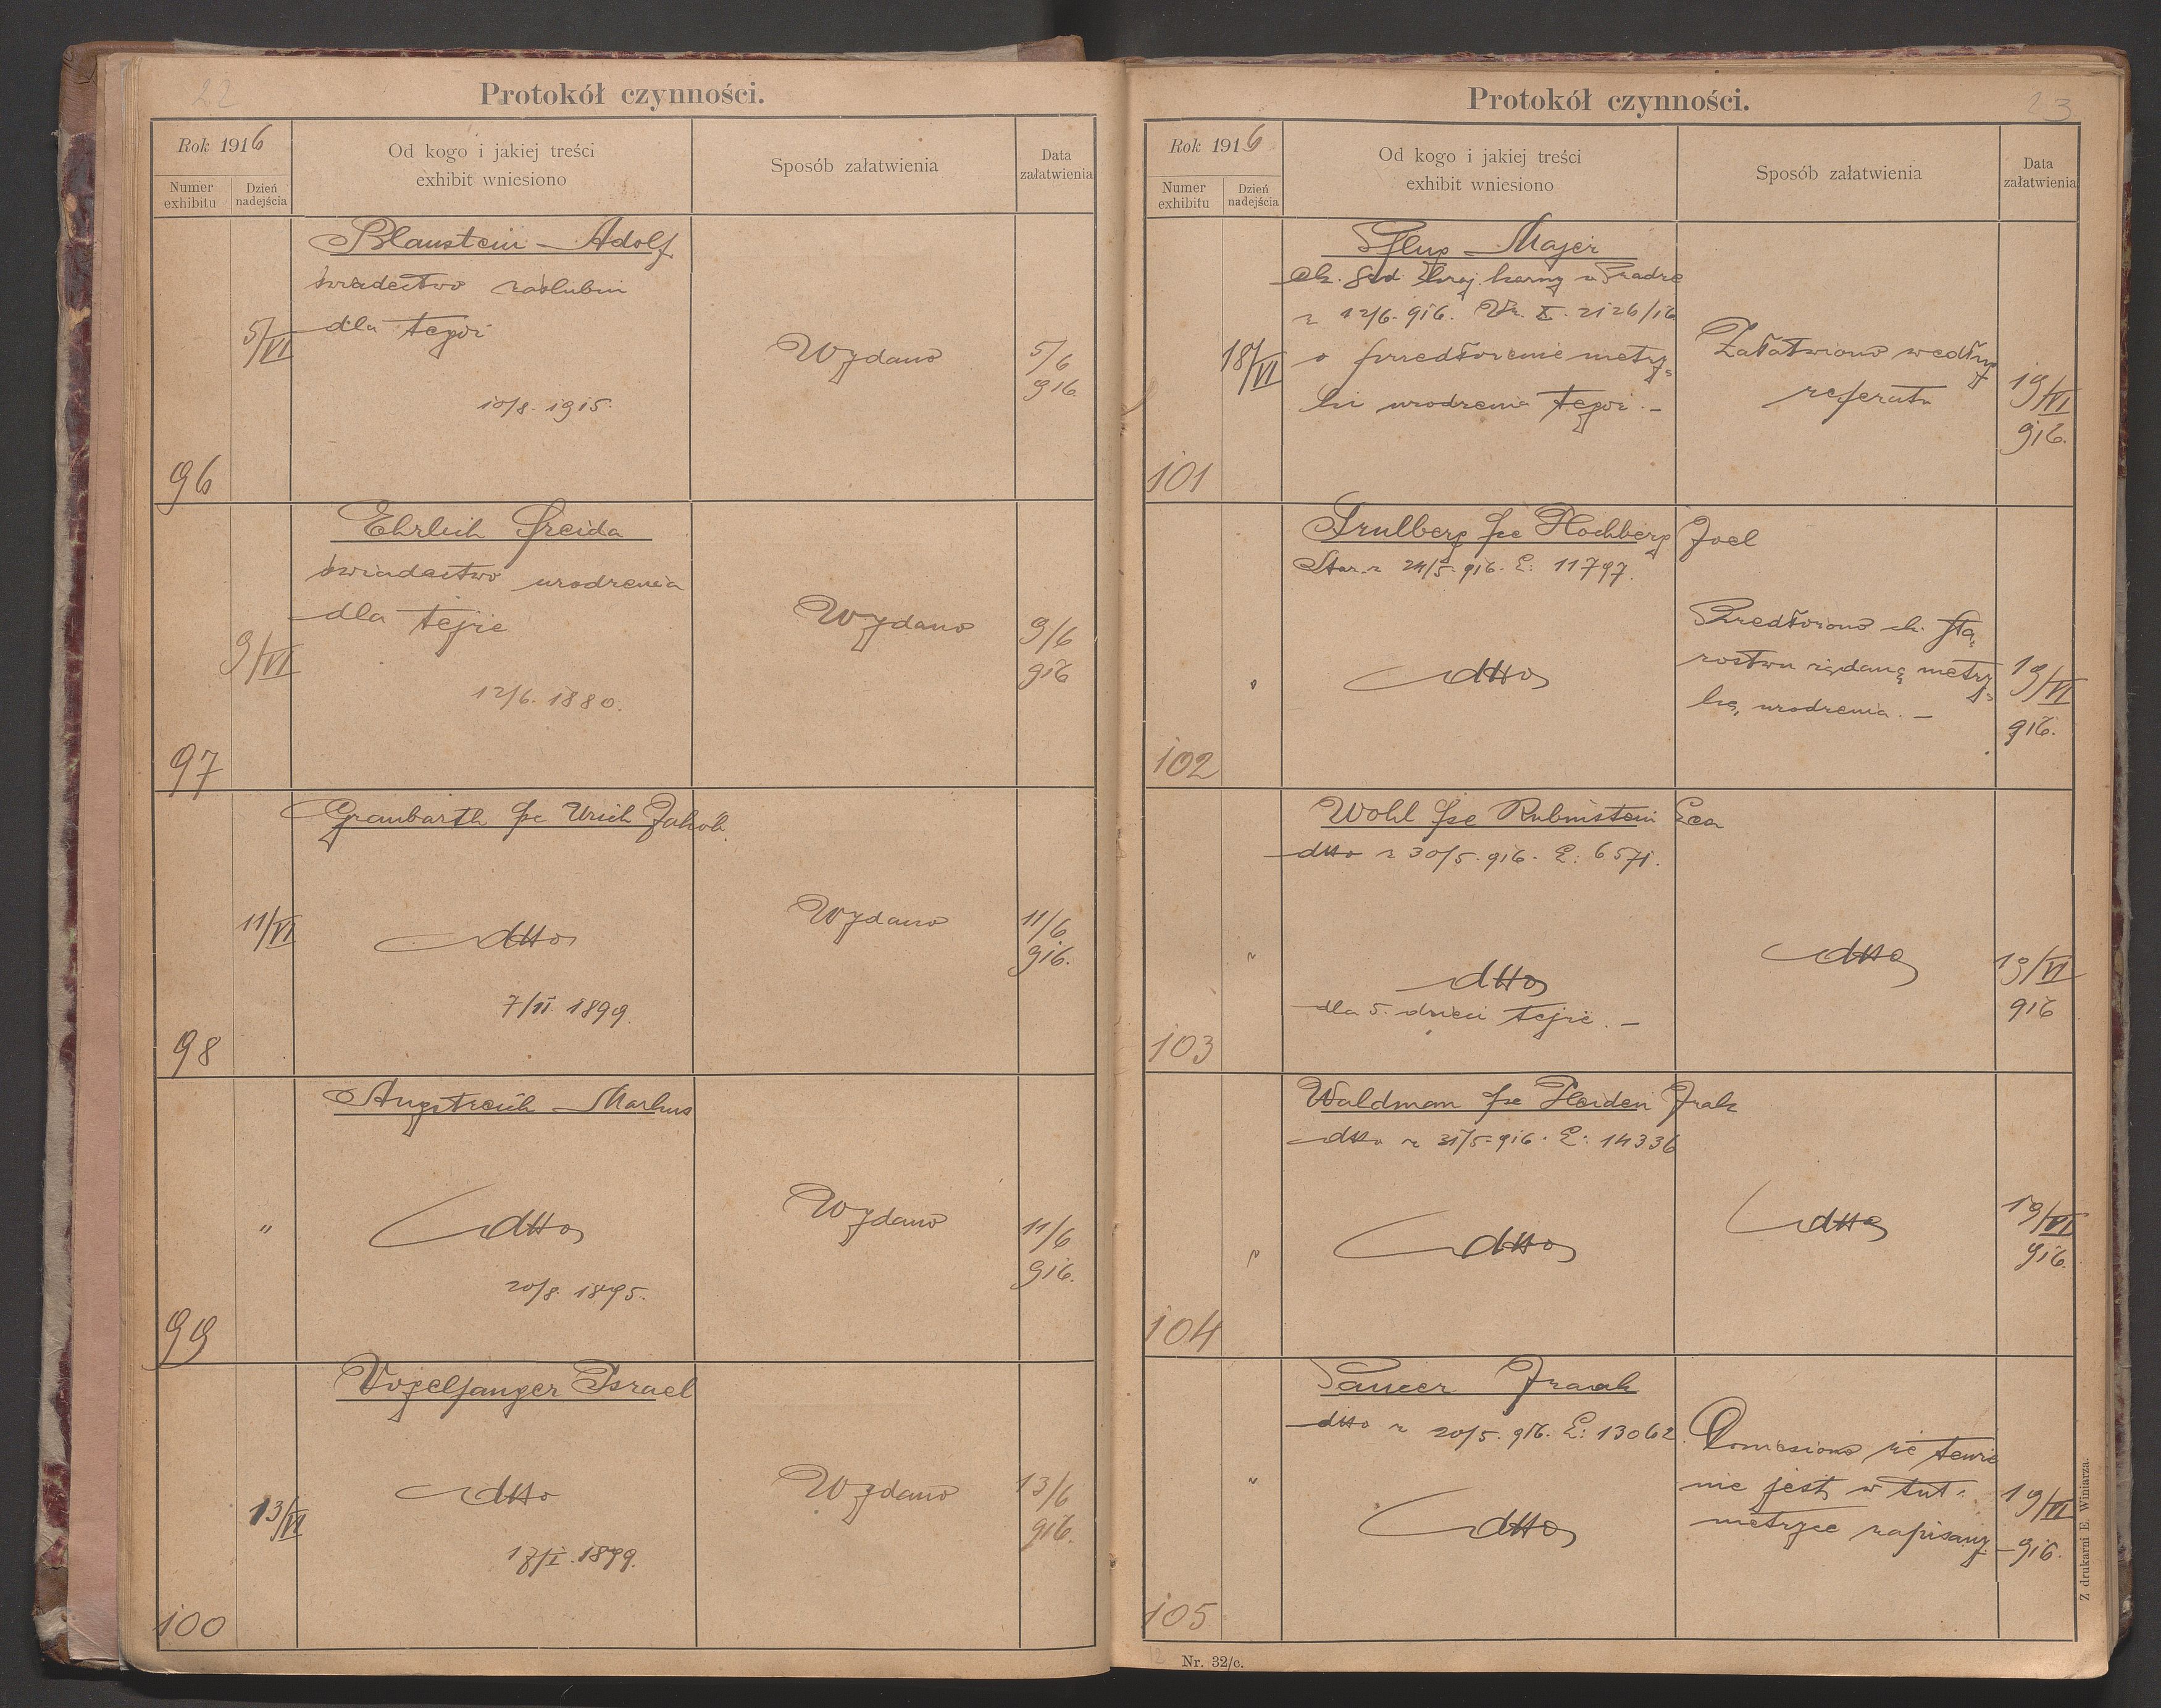 22
Protokół czynności.
Rok 1916
Numer exhibitu
Dzień nadejścia
Od kogo i jakiej treści
exhibit wniesiono
Sposób załatwienia
Data
załatwienia
Blaustein Adolf
świadectwo zaślubin
dla tegoż
10/8. 1915.
96
5/VI
Wydano
5/6
916
Ehrlich Freida
świadectwo urodzenia
dla tejże
12/6. 1880.
97
9/VI
Wydano
9/6
916
Graubarth fse Urich Jakob.
dtto
7/11. 1899.
98
11/VI
Wydano
11/6
916.
Angstreich Markus
dtto
20/8. 1895.
99
"
Wydano
11/6
916.
Vogelfanger Israel
dtto
17/I. 1899.
100
13/VI
Wydano
13/6
916.
23
Protokół czynności.
Rok 1916
Numer exhibitu
Dzień nadejścia
Od kogo i jakiej treści
exhibit wniesiono
Sposób załatwienia
Data
załatwienia
Majer
ck. Sąd kraj. karny w
z 12/6. 916. Vr. X. 2126/16
o przedłożenie metry-
ki urodzenia tegoż. –
101
18/VI
Załatwiono według
referatu
19/VI
916.
fse Hochberg Joel
Star. z 24/5. 916. L: 11797.
dtto
102
"
Przedłożono ck. Sta-
rostwu żądaną metry-
kę urodzenia. –
19/VI
916.
Wohl fse Rubinstein
dtto z 30/5. 916. L: 6571.
dtto
dla 5. dzieci tejże. –
103
"
dtto
19/VI
916
Waldman fse Heiden
dtto z 31/5. 916. L: 14336
dtto
104
"
dtto
19/VI
916.
dtto z 20/5. 916. L: 13062.
dtto
105
"
Doniesiono że tenże
nie jest w tut.
metryce zapisany. –
19/VI
916.
Z drukarni E. Winiarza.
Nr. 32/c.